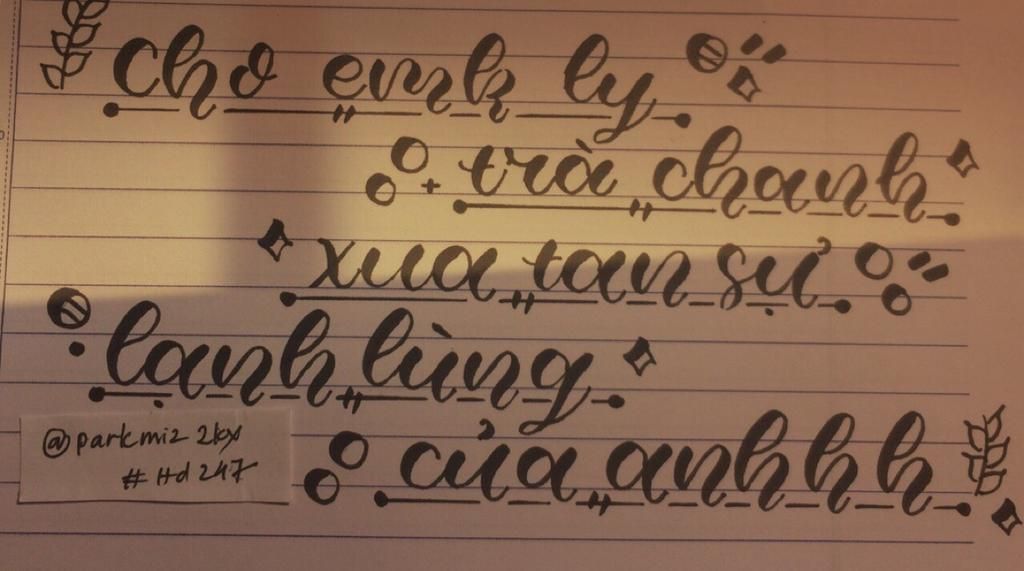 cho emk ly
trà chanh
xua tan sự
lạnh lùng
của anhhh
@parkmiz2kx
#Hd247